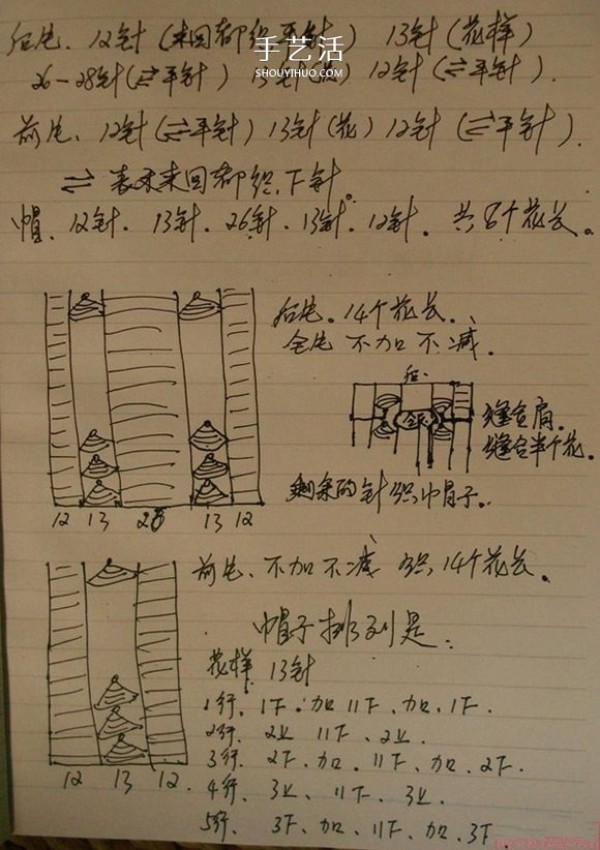 后片、12针(来回都织平针) 13针(花样)
手艺活
SHOUYIHUO.COM
26-28针(⇄平针) 13针(花) 12针(⇄平针).
前片、12针(⇄平针) 13针(花) 12针(⇄平针).
⇄ 表示来回都织下针。
帽、12针、13针、26针、13针、12针。共8个花长。
后片。14个花长、
全片不加不减.
后
缝合肩.
缝合半个花.
剩余的针织帽子..
12 13 28 13 12
前片、不加不减 织14个花长。
帽子排列是:
花样 13针
1行、1下、加 11下、加、1下.
2行、2上 11下、2上.
3行、2下、加、11下、加、2下.
4行、3上、11下、3上.
12 13 12.
5行、3下、加、11下、加、3下.